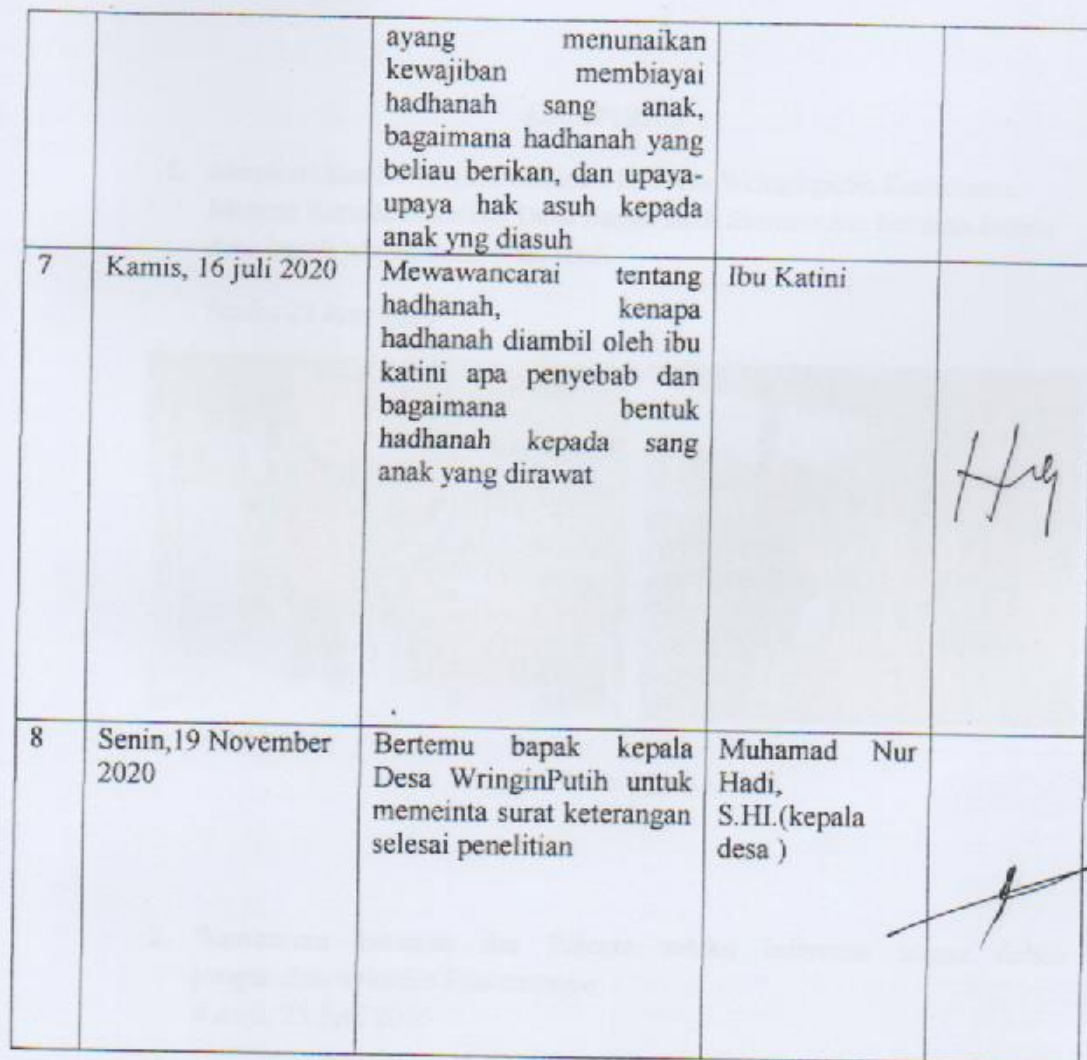 ayang menunaikan
kewajiban membiayai
hadhanah sang anak,
bagaimana hadhanah yang
beliau berikan, dan upaya-
upaya hak asuh kepada
anak yng diasuh
7
Kamis, 16 juli 2020
Mewawancarai tentang
hadhanah, kenapa
hadhanah diambil oleh ibu
katini apa penyebab dan
bagaimana bentuk
hadhanah kepada sang
anak yang dirawat
Ibu Katini
8
Senin,19 November
2020
Bertemu bapak kepala
Desa WringinPutih untuk
memeinta surat keterangan
selesai penelitian
Muhamad Nur
Hadi,
S.HI.(kepala
desa )